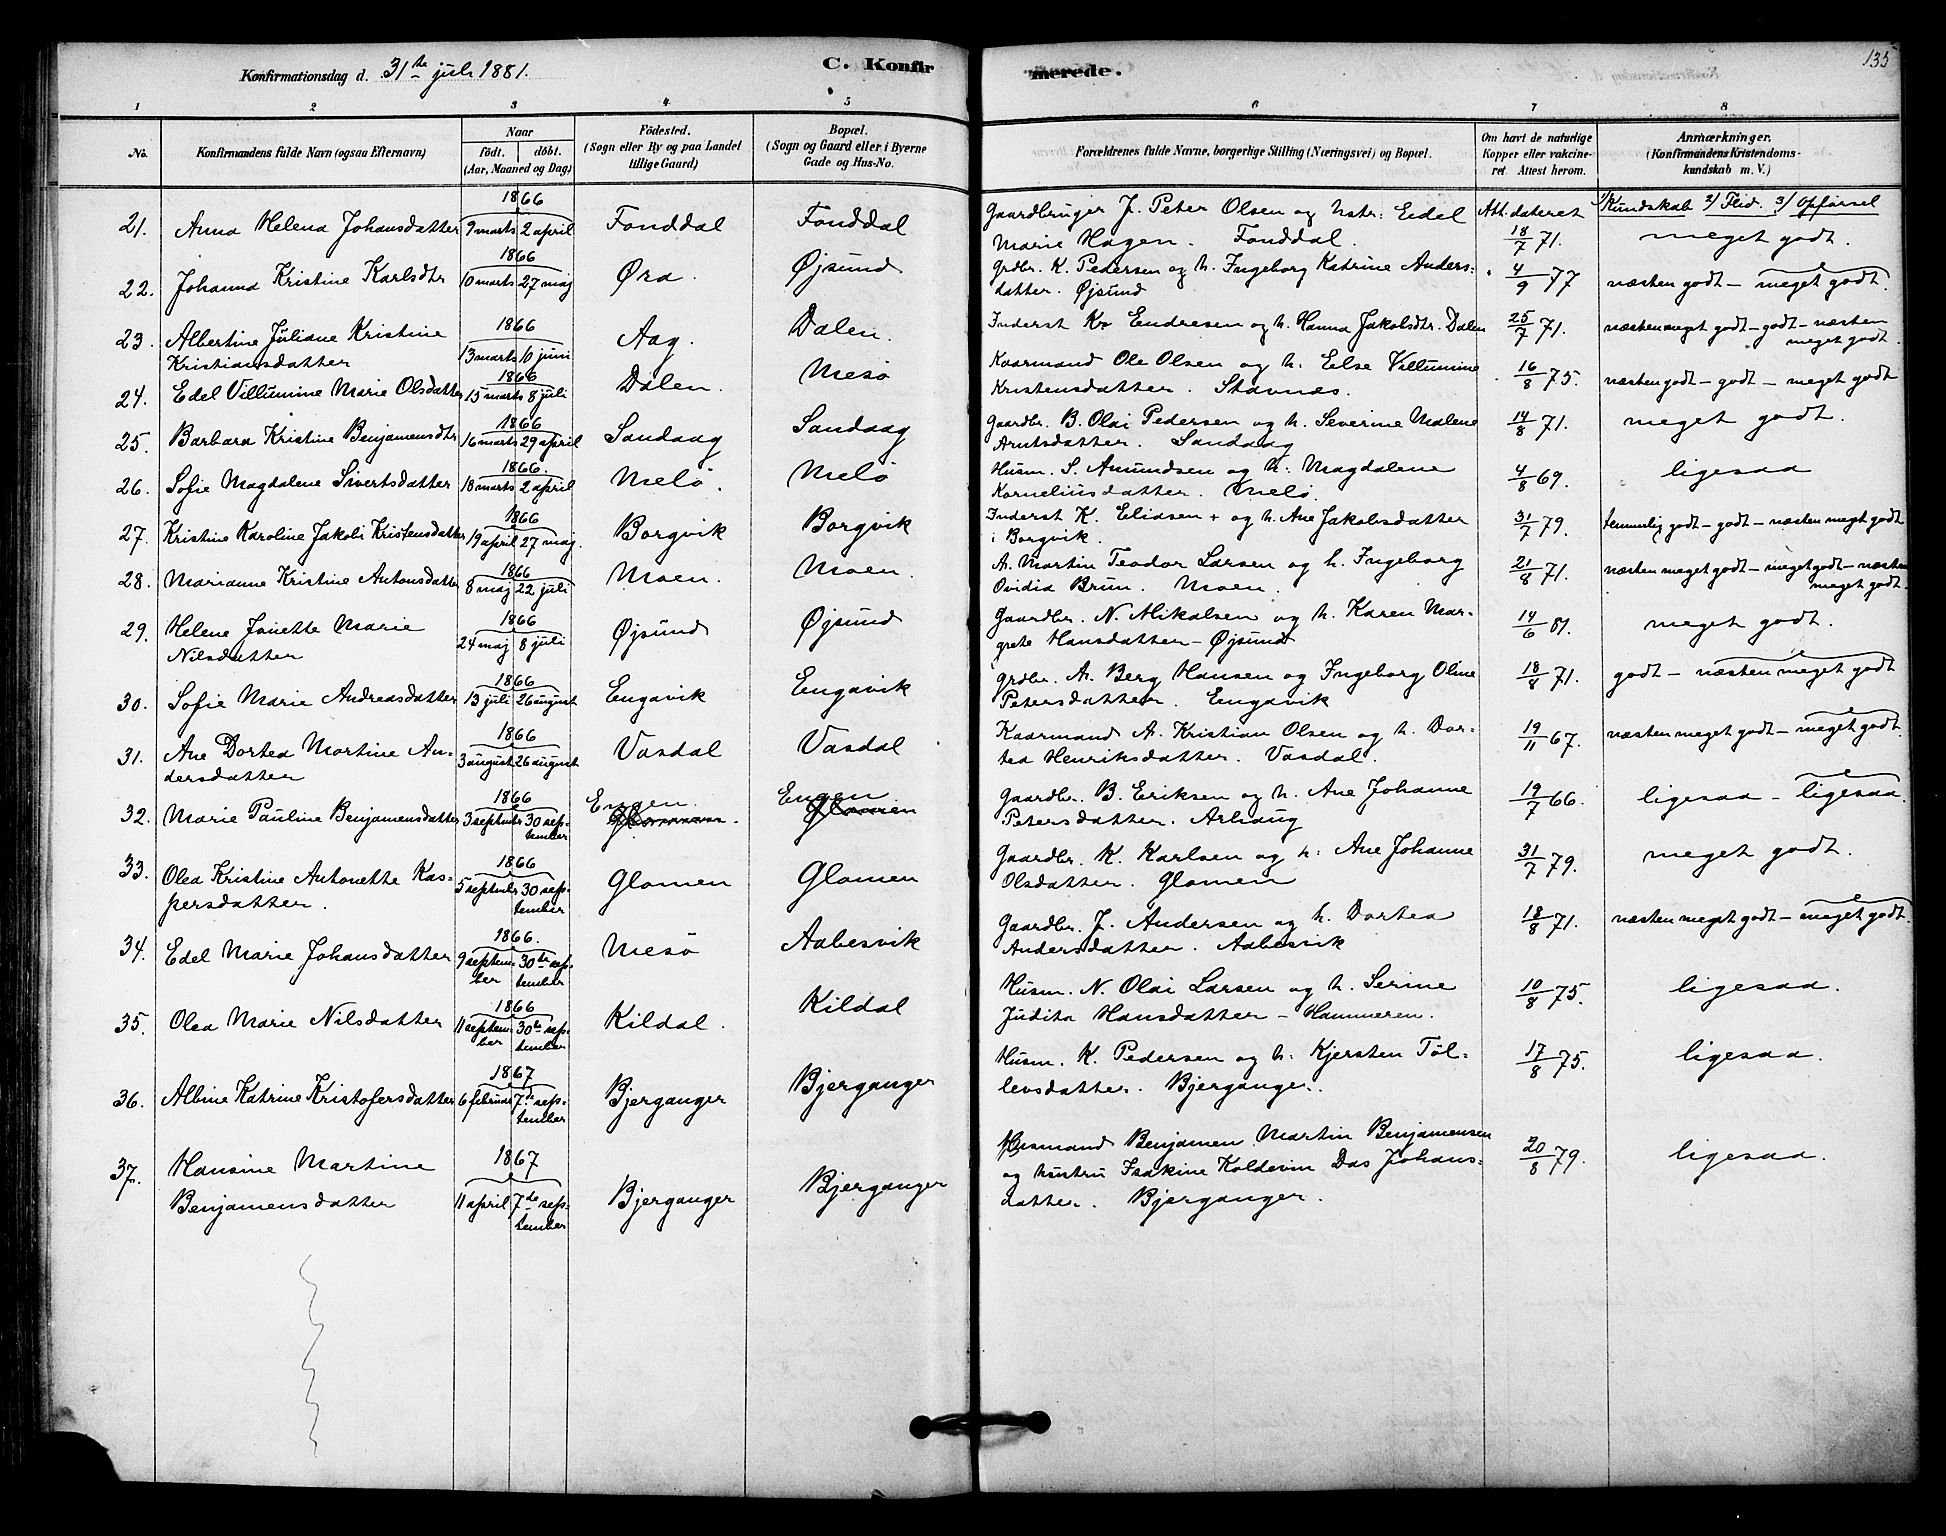 135
Konfirmationsdag d. 31te juli 1881.
C. Konfirmerede.
1 2 3 4 5 6 7 8
No.
Konfirmandens fulde Navn (ogsaa Efternavn)
Naar
født. døbt.
(Aar, Maaned og Dag)
Fødested.
(Sogn eller By og paa Landet
tillige Gaard)
Bopæl.
(Sogn og Gaard eller i Byerne
Gade og Hus-No.
Forældrenes fulde Navne, borgerlige Stilling (Næringsvei) og Bopæl.
Om havt de naturlige
Kopper eller vakcine-
ret. Attest herom.
Anmærkninger.
(Konfirmandens Kristendoms-
kundskab m. V.)
Att. dateret
1/ Kundskab 2/ Flid. 3/ Opførsel
1866
21. Anna Helena Johansdatter 9 marts 2 april Fonddal Fonddal Gaardbruger J. Peter Olsen og hstr: Edel
Marie Hagen. Fonddal. 18/7 71. meget godt.
1866
22. Johanna Kristine Karlsdtr 10 marts 27 maj Øra. Øjsund Grdbr. K. Pedersen og h. Ingeborg Katrine Anders-
datter. Øjsund 4/9 77 næsten godt – meget godt.
1866
23. Albertine Juliane Kristine
Kristiansdatter 13 marts 10 juni Aag. Dalen. Inderst Kr Endresen og h. Hanna Jakobsdtr. Dalen 25/7 71. næsten meget godt – godt – næsten
meget godt.
1866
24. Edel Villumine Marie Olsdatter 15 marts 8 juli Dalen. Mesø Kaarmand Ole Olsen og h. Else Villumine
Kristensdatter. Stavnes. 16/8 75. næsten godt – godt – meget godt
1866
25. Barbara Kristine Benjamensdtr 16 marts 29 april Sandaag Sandaag Gaardbr. B. Olai Pedersen og h. Severine Malene
Arntsdatter. Sandaag 14/8 71. meget godt.
1866.
26. Sofie Magdalene Sivertsdatter 18 marts 2 april Melø. Melø Husm. S. Amundsen og h. Magdalene
Korneliusdatter. Melø. 4/8 69. ligesaa
1866
27. Kristine Karoline Jakobi Kristensdatter 19 april 27 maj Borgvik Borgvik Inderst K. Elidsen + og h. Ane Jakobsdatter
i Borgvik. 31/7 79. temmelig godt – godt – næsten meget godt
1866
28. Marianne Kristine Antonsdatter 8 maj 22 juli Moen. Moen. A. Martin Teodor Larsen og h. Ingeborg
Ovidia Brun. Moen. 21/8 71. næsten meget godt – meget godt – næsten
meget godt.
1866
29. Helene Jonette Marie
Nilsdatter 24 maj 8 juli Øjsund Øjsund Gaardbr. N. Mikalsen og h. Karen Mar-
grete Hansdatter – Øjsund 14/6 81. meget godt.
1866
30. Sofie Marie Andreasdatter 13 juli 26 august Engavik Engavik Grdbr. A. Berg Hansen og Ingeborg Oline
Petersdatter. Engavik 18/8 71. godt – næsten meget godt
1866
31. Ane Dortea Martine An-
dersdatter 3 august 26 august Vasdal Vasdal Kaarmand A. Kristian Olsen og h. Dor-
tea Henriksdatter. Vasdal. 19/11 67. næsten meget godt – meget godt.
1866
32. Marie Pauline Benjamensdatter 3 septmbr 30 sep-
tember Engen. Glommen. Engen Glomen Gaardbr. B. Eriksen og h. Ane Johanne
Petersdatter. Arhaug 19/7 66. ligesaa – ligesaa.
1866
33. Olea Kristine Antonette Kas-
persdatter. 5 septmbr 30 sep-
tember Glomen Glomen Gaardbr. K. Karlsen og h: Ane Johanne
Olsdatter. Glomen 31/7 79. meget godt.
1866.
34. Edel Marie Johansdatter 9 septem-
ber 30te sep-
tember Mesø Aabesvik Gaardbr. J. Andersen og h. Dortea
Andersdatter. Aabesvik 18/8 71. næsten meget godt – meget godt.
1866
35. Olea Marie Nilsdatter 11 septem-
ber 30te sep-
tember Kildal. Kildal Husm. N. Olai Larsen og h. Serine
Judita Hansdatter – Hammeren. 10/8 75. ligesaa.
1867
36. Albine Katrine Kristofersdatter 6 februar 7de sep-
tember Bjerganger Bjerganger Husm. K. Pedersen og h: Kjersten Tøl-
levsdatter. Bjerganger. 17/8 75. ligesaa.
1867
37. Hansine Martine
Benjamensdatter 11 april 7de sep-
tember Bjerganger Bjerganger Husmand Benjamen Martin Benjamensen
og hustru Isakine Koldevin Das Johans-
datter. Bjerganger. 20/8 79. ligesaa.